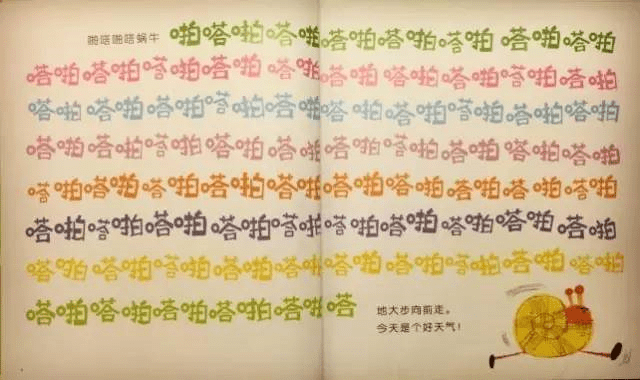 啪嗒啪嗒蜗牛 啪嗒啪嗒啪嗒啪嗒啪嗒啪嗒啪嗒啪
嗒啪嗒啪嗒啪嗒啪嗒啪嗒啪嗒啪嗒啪嗒啪嗒啪
嗒啪嗒啪嗒啪嗒啪嗒啪嗒啪嗒啪嗒啪嗒啪嗒啪
嗒啪嗒啪嗒啪嗒啪嗒啪嗒啪嗒啪嗒啪嗒啪嗒啪
嗒啪嗒啪嗒啪嗒啪嗒啪嗒啪嗒啪嗒啪嗒啪嗒啪
嗒啪嗒啪嗒啪嗒啪嗒啪嗒啪嗒啪嗒啪嗒啪嗒啪
嗒啪嗒啪嗒啪嗒啪嗒啪嗒啪嗒啪嗒啪嗒啪嗒啪
嗒啪嗒啪嗒啪嗒啪嗒啪嗒
地大步向前走。
今天是个好天气！